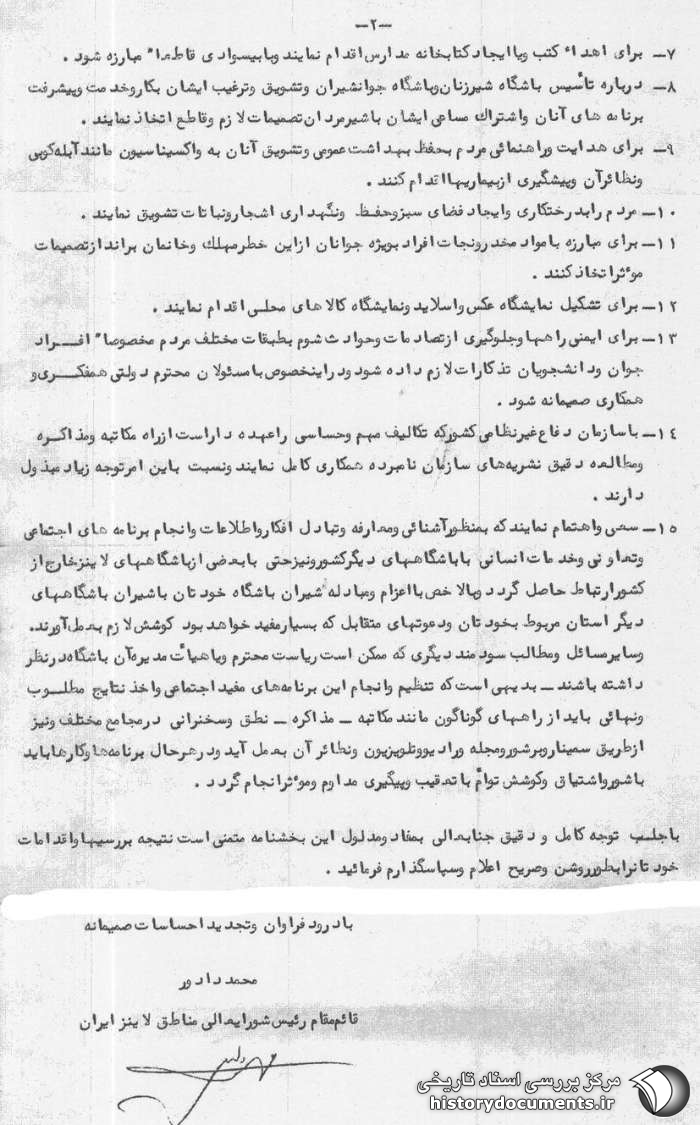 -۲-
۷- برای اهداء کتب ویا ایجاد کتابخانه مدارس اقدام نمایند وبا بیسوادی قاطعا" مبارزه شود .
۸- درباره تأسیس باشگاه شیرزنان وباشگاه جوانشیران وتشویق وترغیب ایشان بکار وخدمت وپیشرفت
برنامه های آنان واشتراک مساعی ایشان باشیرمردان تصمیمات لازم وقاطع اتخاذ نمایند .
۹- برای هدایت وراهنمائی مردم بحفظ بهداشت عمومی وتشویق آنان به واکسیناسیون مانند آبله کوبی
ونظائر آن وپیشگیری از بیماریها اقدام کنند .
۱۰- مردم را بدرختکاری وایجاد فضای سبز وحفظ ونگهداری اشجار ونباتات تشویق نمایند .
۱۱- برای مبارزه با مواد مخدر ونجات افراد بویژه جوانان از این خطر مهلک وخانمان برانداز تصمیمات
موءثر اتخاذ کنند .
۱۲- برای تشکیل نمایشگاه عکس واسلاید ونمایشگاه کالاهای محلی اقدام نمایند .
۱۳- برای ایمنی راهها وجلوگیری از تصادمات وحوادث شوم بطبقات مختلف مردم مخصوصا" افراد
جوان ودانشجویان تذکارات لازم داده شود ودر اینخصوص با مسئولان محترم دولتی همفکری و
همکاری صمیمانه شود .
۱۴- با سازمان دفاع غیرنظامی کشور که تکالیف مهم وحساسی را عهده دار است از راه مکاتبه ومذاکره
ومطالعه دقیق نشریه های سازمان نامبرده همکاری کامل نمایند ونسبت باین امر توجه زیاد مبذول
دارند .
۱۵- سعی واهتمام نمایند که بمنظور آشنائی ومعارفه وتبادل افکار واطلاعات وانجام برنامه های اجتماعی
وتعاونی وخدمات انسانی با باشگاههای دیگر کشور ونیز حتی با بعضی از باشگاههای لاینز خارج از
کشور ارتباط حاصل گردد وبالاخص با اعزام ومبادله شیران باشگاه خودتان با شیران باشگاههای
دیگر استان مربوط بخودتان ودعوتهای متقابل که بسیار مفید خواهد بود کوشش لازم بعمل آورند.
وسایر مسائل ومطالب سودمند دیگری که ممکن است ریاست محترم ویا هیأت مدیره آن باشگاه در نظر
داشته باشند - بدیهی است که تنظیم وانجام این برنامه های مفید اجتماعی واخذ نتایج مطلوب
ونهائی باید از راههای گوناگون مانند مکاتبه - مذاکره - نطق وسخنرانی در مجامع مختلف ونیز
از طریق سمینار وبرشور ومجله ورادیو وتلویزیون ونظائر آن بعمل آید ودر هر حال برنامه ها وکارها باید
با شور واشتیاق وکوشش توأم با تعقیب وپیگیری مداوم وموءثر انجام گردد .
با جلب توجه کامل و دقیق جنابعالی بمفاد ومدلول این بخشنامه متمنی است نتیجه بررسیها واقدامات
خودتان را بطور روشن وصریح اعلام وسپاسگذارم فرمائید .
با درود فراوان وتجدید احساسات صمیمانه
محمد دادور
قائم مقام رئیس شورایعالی مناطق لاینز ایران
مرکز بررسی اسناد تاریخی
historydocuments.ir